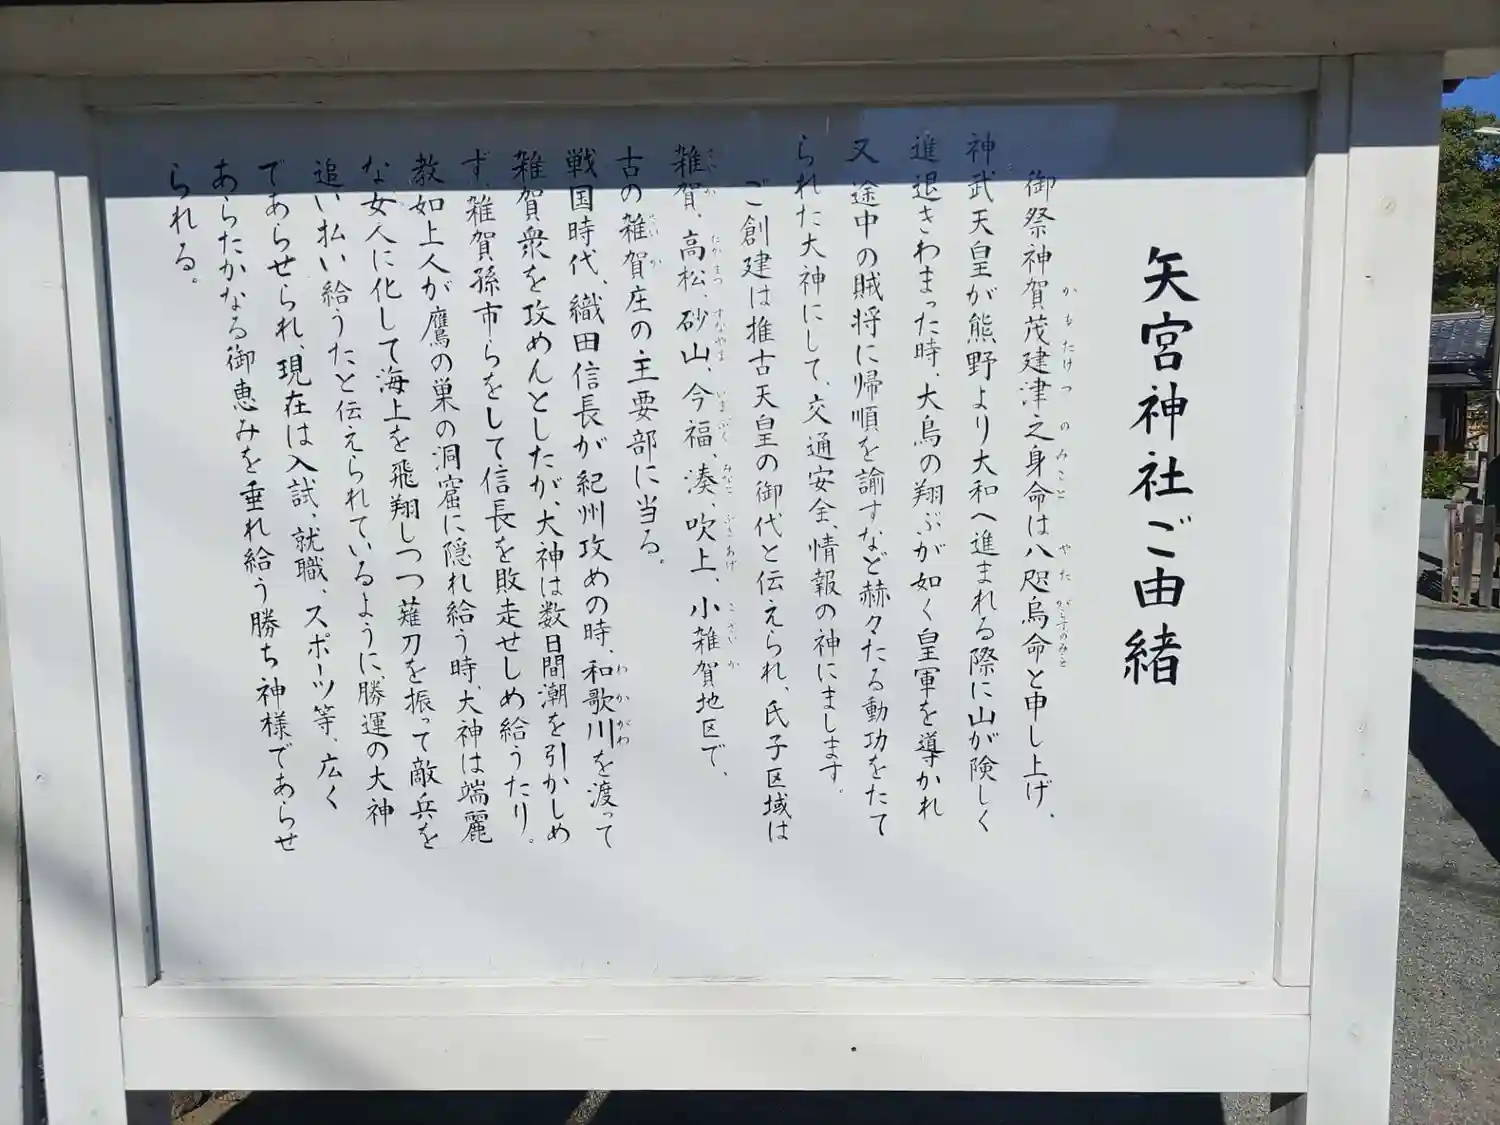 矢宮神社ご由緒
御祭神賀茂建津之身命は八咫烏命と申し上げ、
神武天皇が熊野より大和へ進まれる際に山が険しく
進退きわまった時、大鳥の翔ぶが如く皇軍を導かれ
又途中の賊将に帰順を諭すなど赫々たる勲功をたて
られた大神にして、交通安全、情報の神にまします。
ご創建は推古天皇の御代と伝えられ、氏子区域は
雑賀、高松、砂山、今福、湊、吹上、小雑賀地区で、
古の雑賀庄の主要部に当る。
戦国時代、織田信長が紀州攻めの時、和歌川を渡って
雑賀衆を攻めんとしたが、大神は数日間潮を引かしめ
ず、雑賀孫市らをして信長を敗走せしめ給うたり。
教如上人が鷹の巣の洞窟に隠れ給う時、大神は端麗
な女人に化して海上を飛翔しつつ薙刀を振って敵兵を
追い払い給うたと伝えられているように、勝運の大神
であらせられ、現在は入試、就職、スポーツ等、広く
あらたかなる御恵みを垂れ給う勝ち神様であらせ
られる。